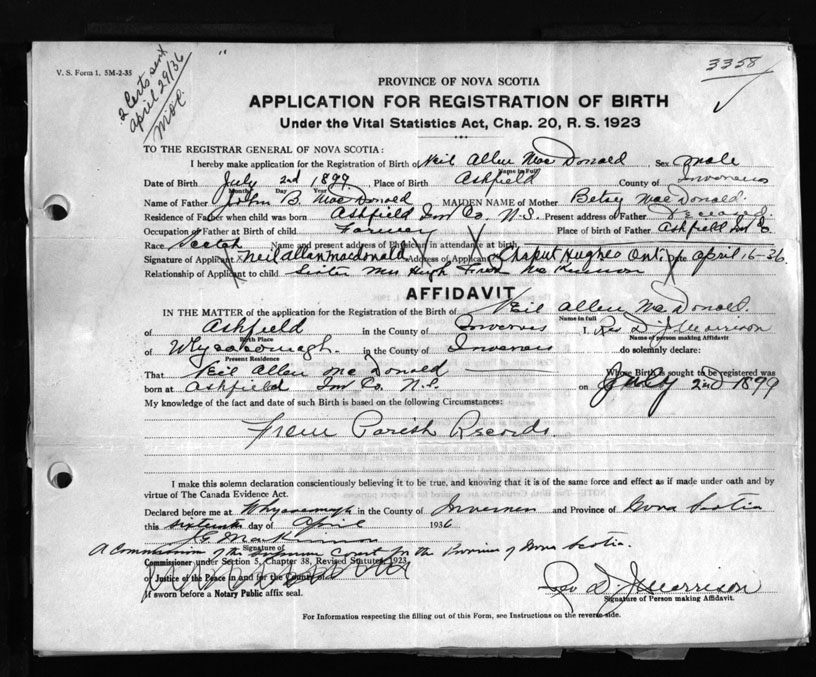 V. S. Form 1. 5M-2-35
2 Certs sent
april 29/36
3358
PROVINCE OF NOVA SCOTIA
APPLICATION FOR REGISTRATION OF BIRTH
Under the Vital Statistics Act, Chap. 20, R. S. 1923
TO THE REGISTRAR GENERAL OF NOVA SCOTIA:
I hereby make application for the Registration of Birth of Neil Allen MacDonald Sex male
Name in Full
Date of Birth July 2nd 1899 Place of Birth Ashfield County of Inverness
Month Day Year
Name of Father John B. MacDonald MAIDEN NAME of Mother Betsy MacDonald.
Residence of Father when child was born Ashfield Inv Co. N.S. Present address of Father
Occupation of Father at Birth of child Farmer Place of birth of Father Ashfield Inv Co
Race Scotch Name and present address of Physician in attendance at birth
Signature of Applicant Neil Allan Macdonald Address of Applicant Chaput Hughes Ont. Date april 16-36.
Relationship of Applicant to child Sister Mrs Hugh Fred McKinnon
AFFIDAVIT
IN THE MATTER of the application for the Registration of the Birth of Neil Allen MacDonald.
Name in full
of Ashfield in the County of Inverness I, Rev D. J Morrison
Birth Place Name of person making Affidavit
of Whycocomagh. in the County of Inverness do solemnly declare:
Present Residence
That Neil Allen McDonald Whose Birth is sought to be registered was
born at Ashfield Inv Co. N.S. on July 2nd 1899
My knowledge of the fact and date of such Birth is based on the following Circumstances:
From Parish Records.
I make this solemn declaration conscientiously believing it to be true, and knowing that it is of the same force and effect as if made under oath and by
virtue of The Canada Evidence Act.
Declared before me at Whycocomagh in the County of Inverness and Province of Nova Scotia
this sixteenth day of April 1936
J G MacKinnon
Signature of
A Commissioner of the Supreme Court for the Province of Nova Scotia.
Commissioner under Section 5, Chapter 38, Revised Statutes, 1923
or Justice of the Peace in and for the County of
If sworn before a Notary Public affix seal.
Rev D. J Morrison
Signature of Person making Affidavit.
For Information respecting the filling out of this Form, see Instructions on the reverse side.